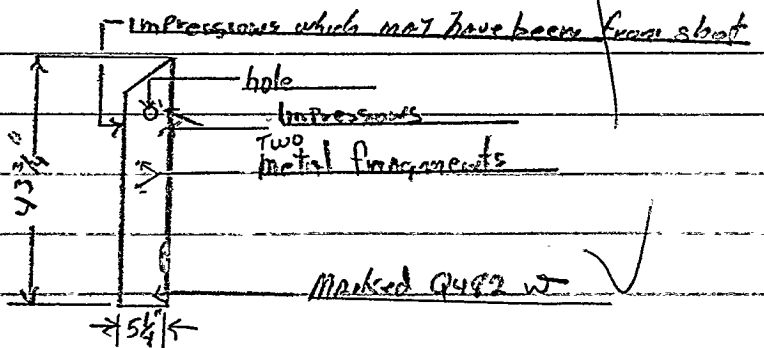 Impressions which may have been from shot
hole
Impressions
Two
metal fragments
43 3/4"
Marked Q482 w
5 1/4"